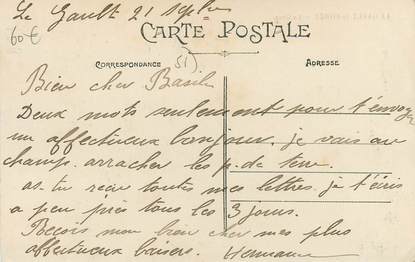 Le Gault 21 7bre
60€
CARTE POSTALE
CORRESPONDANCE
(51)
ADRESSE
Bien cher Basile
Deux mots seulement pour t'envoyer
un affectueux bonjour. je vais au
champ. arracher les p. de terre.
as-tu recu toutes mes lettres. je t'écris
a peu près tous les 3 jours.
Recois mon bien cher mes plus
affectueux baisers. Hermance